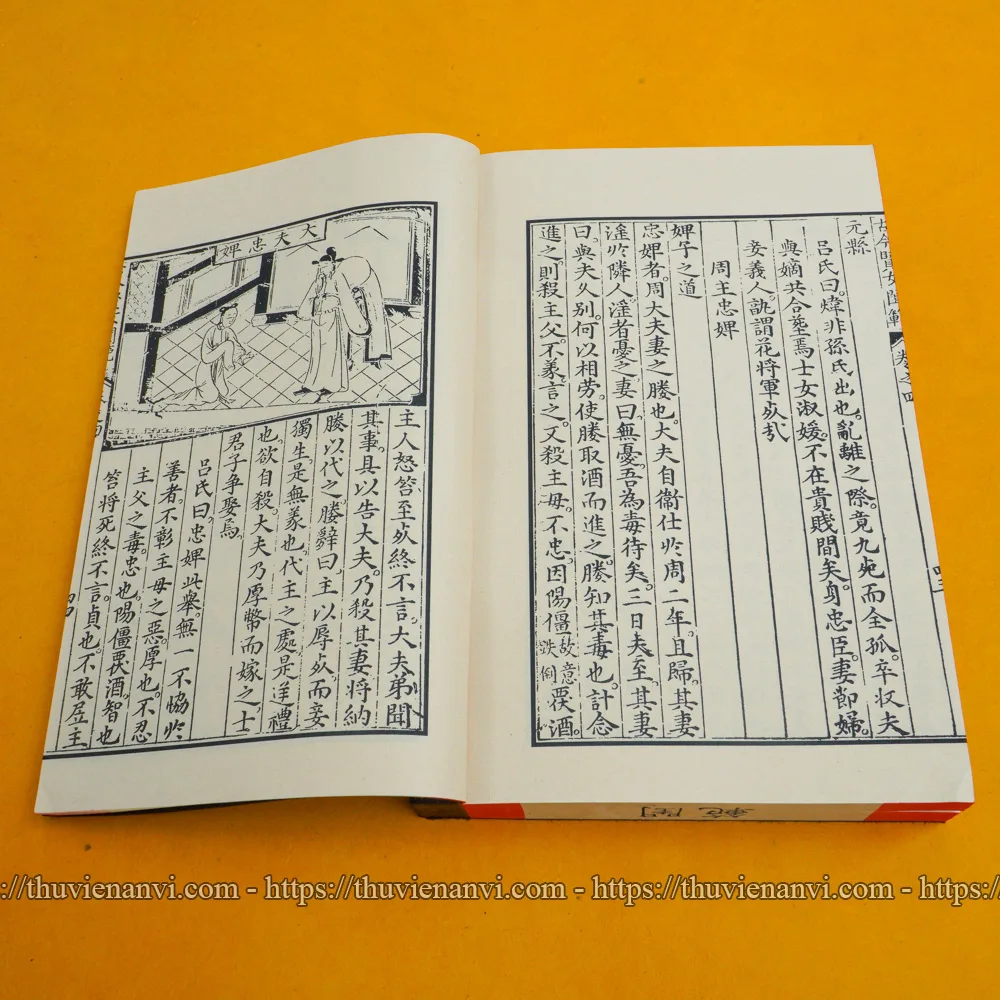 元縣
呂氏曰。煒非孫氏出也。亂離之際。竟九死而全孤。卒収夫
與嫡共合葬焉。士女淑媛。不在貴賤間矣。身忠臣。妻節婦。
妾義人。孰謂花將軍死哉
周主忠婢
婢子之道
忠婢者。周大夫妻之媵也。大夫自衞仕於周二年。且歸。其妻
淫於隣人。淫者憂之。妻曰。無憂。吾為毒待矣。三日夫至。其妻
曰。與夫久别。何以相勞。使媵取酒而進之。媵知其毒也。計念
進之。則殺主父。不義。言之。又殺主母。不忠。因陽僵故意跌倒覆酒。
大夫忠婢
主人怒。笞至死終不言。大夫弟聞
其事。具以告大夫。乃殺其妻。將納
媵以代之。媵辭曰。主以辱死。而妾
獨生。是無義也。代主之處。是逆禮
也。欲自殺。大夫乃厚幣而嫁之。士
君子争娶焉。
呂氏曰。忠婢此舉。無一不協於
善者。不彰主母之惡。厚也。不忍
主父之毒。忠也。陽僵覆酒。智也。
笞將死終不言。貞也。不敢居主
閨範
://thuvienanvi.com - https://thuvienanvi.com - https://thuvienanvi.com - https://